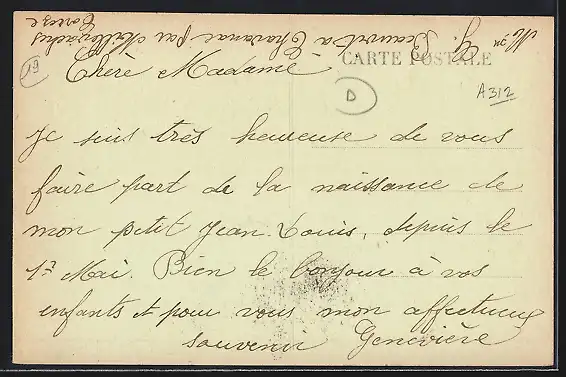 Mme G. Beauvit à Chavanac par Millevaches
Corrèze
CARTE POSTALE
19
D
A312
Chère Madame
Je suis très heureuse de vous
faire part de la naissance de
mon petit Jean Louis, depuis le
17 Mai. Bien le bonjour à vos
enfants et pour vous mon affectueux
souvenir Geneviève